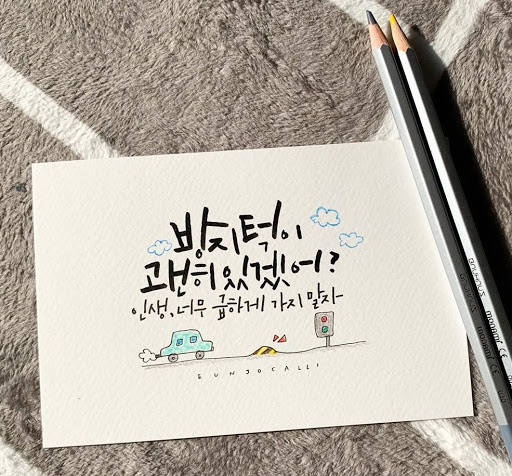 방지턱이
괜히 있겠어?
인생, 너무 급하게 가지 말자-
EUNJOCALLI
monami